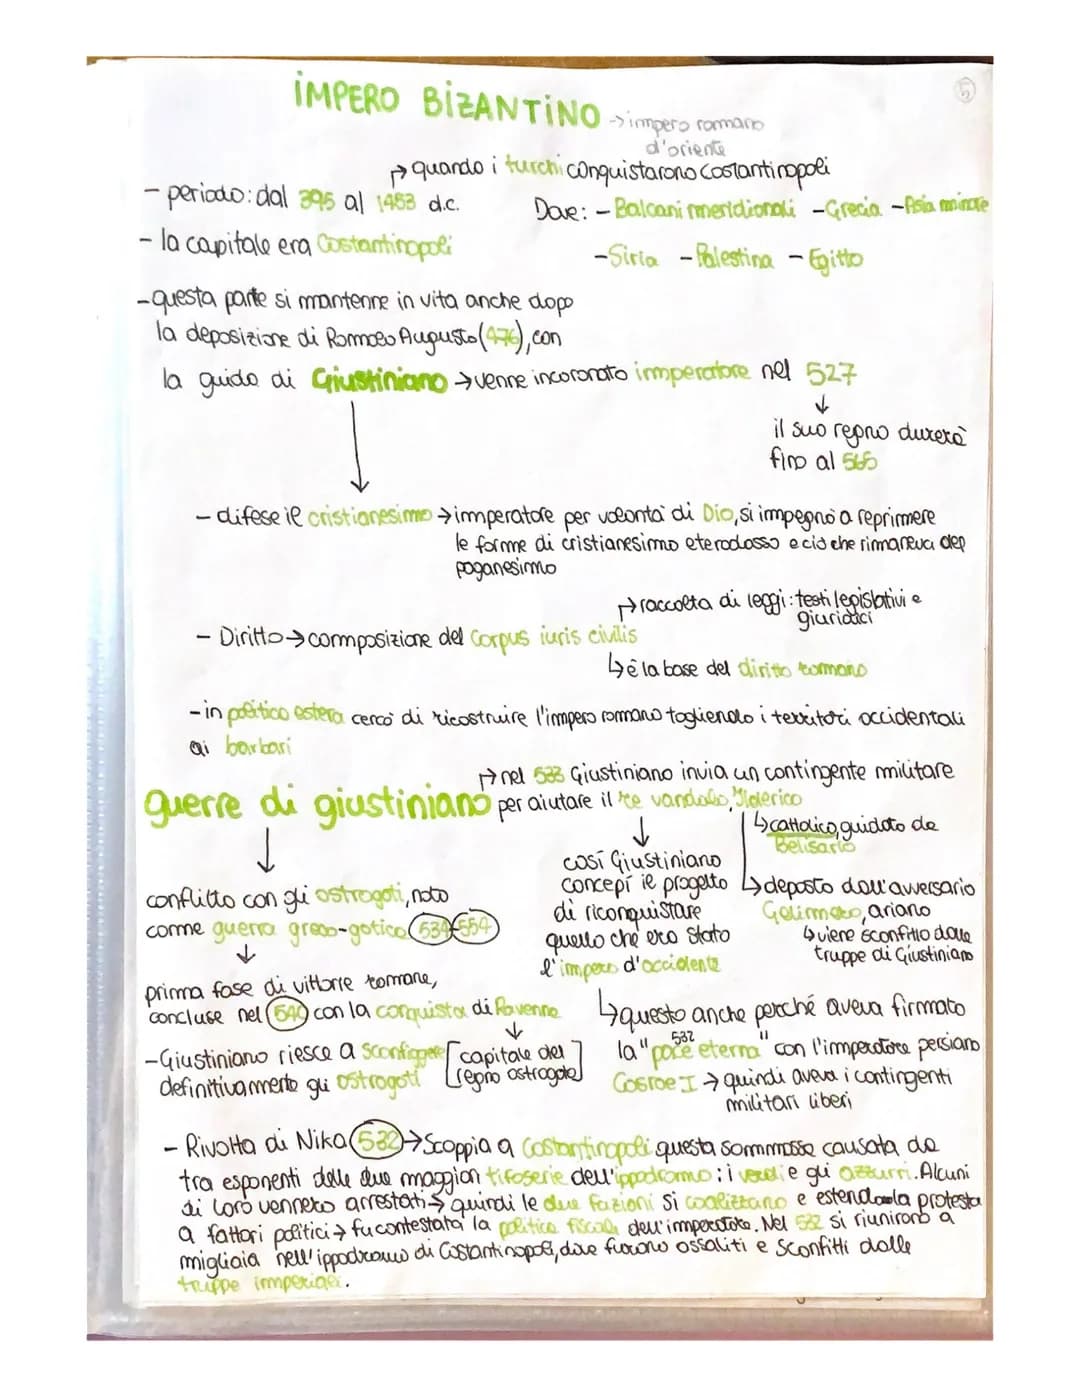 5
IMPERO BIZANTINO → impero romano
d'oriente
↱ quando i turchi conquistarono Costantinopoli
- periodo: dal 395 al 1453 d.c.
Dove: - Balcani meridionali - Grecia - Asia minore
- la capitale era Costantinopoli
- Siria - Palestina - Egitto
- questa parte si mantenne in vita anche dopo
la deposizione di Romolo Augusto (476), con
la guida di Giustiniano → venne incoronato imperatore nel 527
↓
il suo regno durerà
fino al 565
- difese il cristianesimo → imperatore per volontà di Dio, si impegnò a reprimere
le forme di cristianesimo eterodosso e ciò che rimaneva del
paganesimo
↱ raccolta di leggi: testi legislativi e
giuridici
- Diritto → composizione del Corpus iuris civilis
↳ è la base del diritto romano
- in politica estera cercò di ricostruire l'impero romano togliendo i territori occidentali
ai barbari
↱ nel 533 Giustiniano invia un contingente militare
guerre di giustiniano per aiutare il re vandalo, Ilderico
↳ cattolico, guidato da
Belisario
così Giustiniano
concepì il progetto
di riconquistare
quello che era stato
l'impero d'occidente
↳ deposto dall'avversario
Gelimero, ariano
↳ viene sconfitto dalle
truppe di Giustiniano
conflitto con gli ostrogoti, noto
come guerra greco-gotica (534-554)
↓
prima fase di vittorie romane,
concluse nel 540 con la conquista di Ravenna
↓
[capitale del
regno ostrogoto]
↳ questo anche perché aveva firmato
532
la "pace eterna" con l'imperatore persiano
Cosroe I → quindi aveva i contingenti
militari liberi
- Giustiniano riesce a sconfiggere
definitivamente gli ostrogoti
- Rivolta di Nika (532) → Scoppia a Costantinopoli questa sommossa causata da
tra esponenti delle due maggiori tifoserie dell'ippodromo: i verdi e gli azzurri. Alcuni
di loro vennero arrestati → quindi le due fazioni si coalizzano e estendono la protesta
a fattori politici → fu contestata la politica fiscale dell'imperatore. Nel 532 si riunirono a
migliaia nell'ippodromo di Costantinopoli, dove furono assaliti e sconfitti dalle
truppe imperiali.